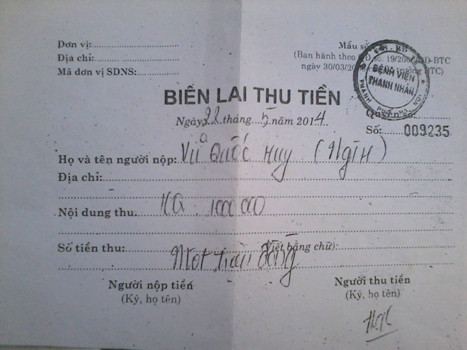 Đơn vị:
Địa chỉ:
Mã đơn vị SDNS:
Mẫu số
(Ban hành theo QĐ số: 19/2006/QĐ-BTC
ngày 30/03/ BTC)
BỆNH VIỆN
THANH NHÀN
BIÊN LAI THU TIỀN
Ngày 22 tháng 5 năm 2014
Quyển số:
Số: 009235
Họ và tên người nộp: Vũ Quốc Huy
Địa chỉ:
Nội dung thu:
Số tiền thu: (Viết bằng chữ):
Một triệu đồng
Người nộp tiền
(Ký, họ tên)
Người thu tiền
(Ký, họ tên)